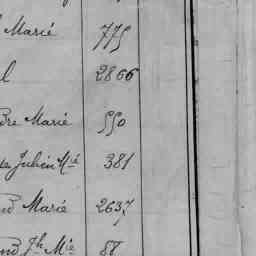 Marié 775
l 2866
Bre Marié 550
Julien Mié 381
Marié 2637
Jh Mié 88